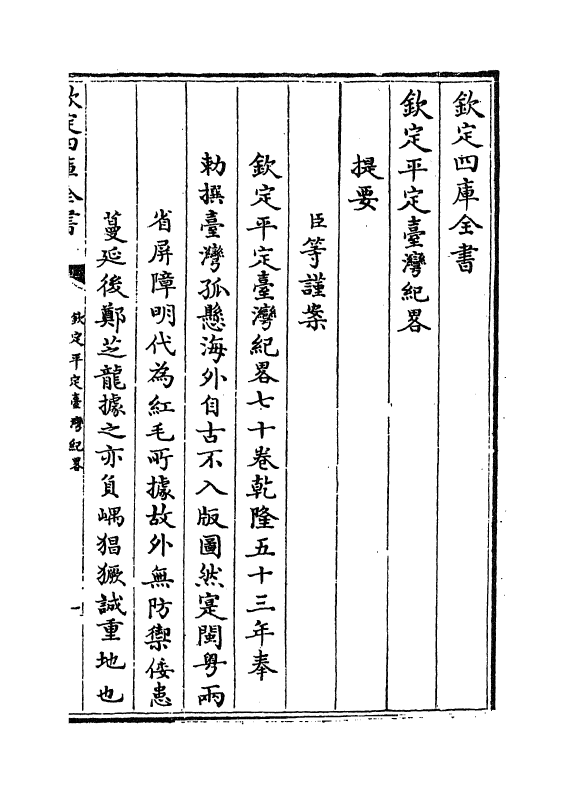 欽定四庫全書
欽定平定臺灣紀畧
提要
臣等謹案
欽定平定臺灣紀畧七十卷乾隆五十三年奉
勅撰臺灣孤懸海外自古不入版圖然寔閩粤兩
省屏障明代為紅毛所據故外無防禦倭患
蔓延後鄭芝龍據之亦負嵎猖獗誠重地也
欽定四庫全書
欽定平定臺灣紀畧
一